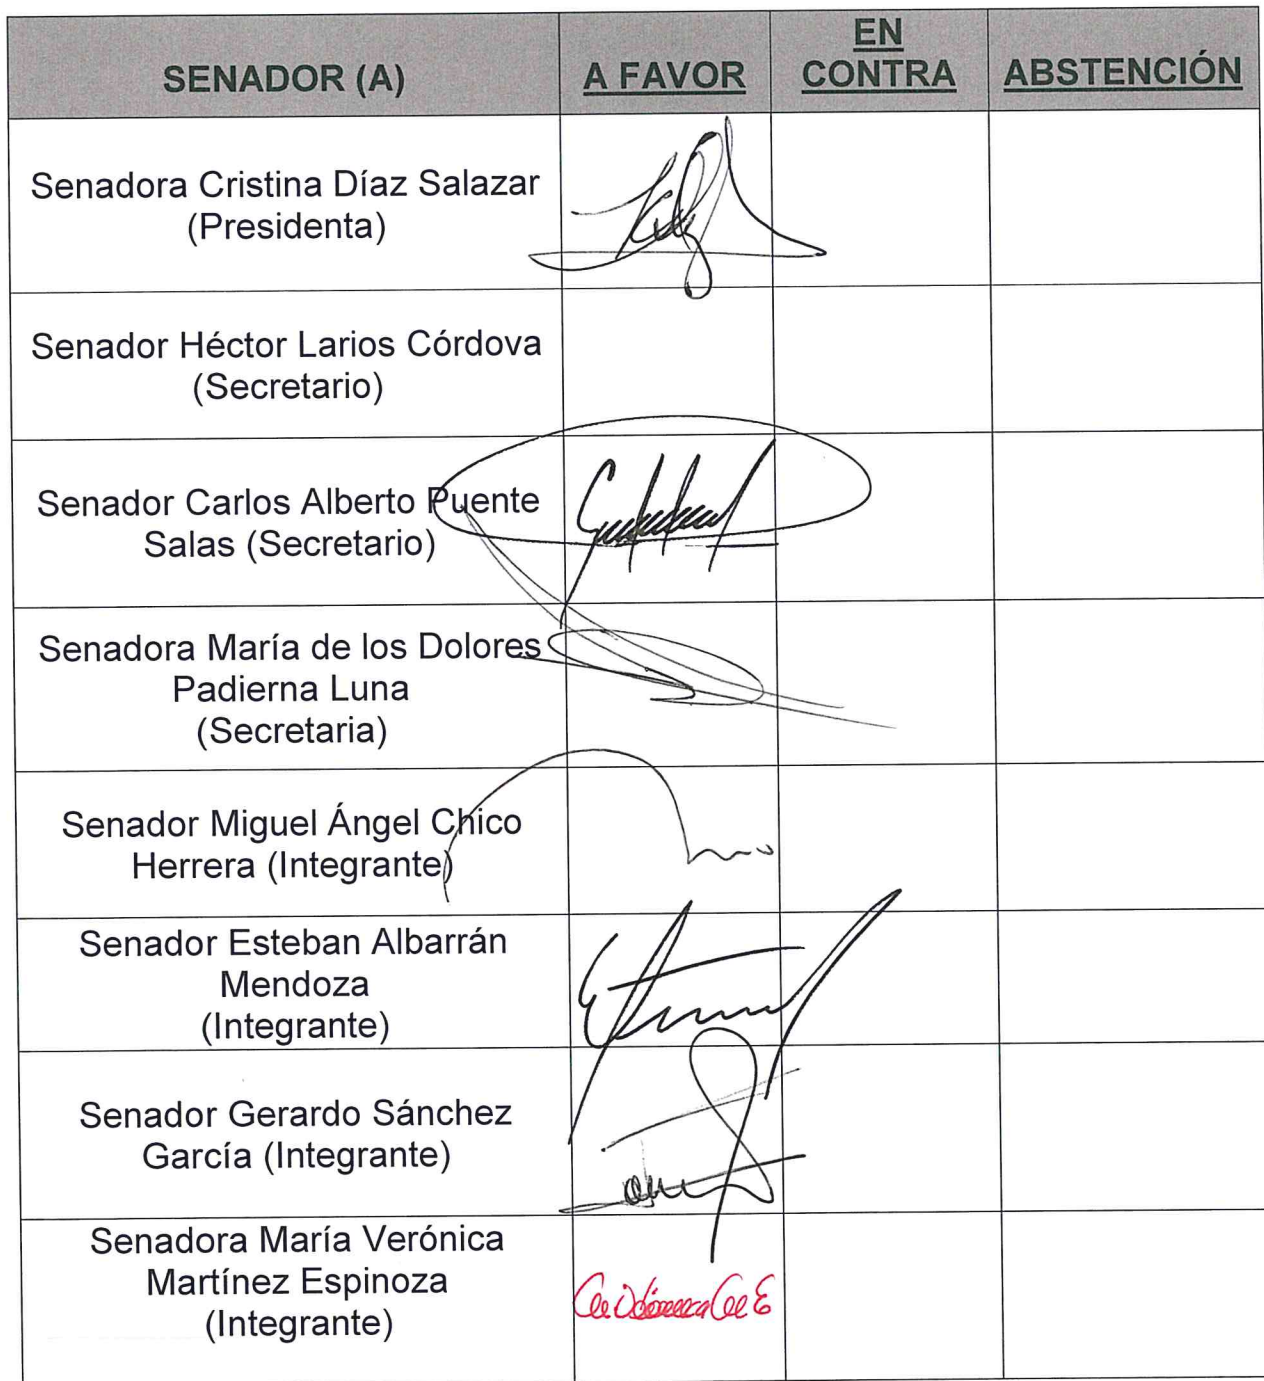 SENADOR (A)
A FAVOR
EN
CONTRA
ABSTENCIÓN
Senadora Cristina Díaz Salazar
(Presidenta)
Senador Héctor Larios Córdova
(Secretario)
Senador Carlos Alberto Puente
Salas (Secretario)
Senadora María de los Dolores
Padierna Luna
(Secretaria)
Senador Miguel Ángel Chico
Herrera (Integrante)
Senador Esteban Albarrán
Mendoza
(Integrante)
Senador Gerardo Sánchez
García (Integrante)
Senadora María Verónica
Martínez Espinoza
(Integrante)